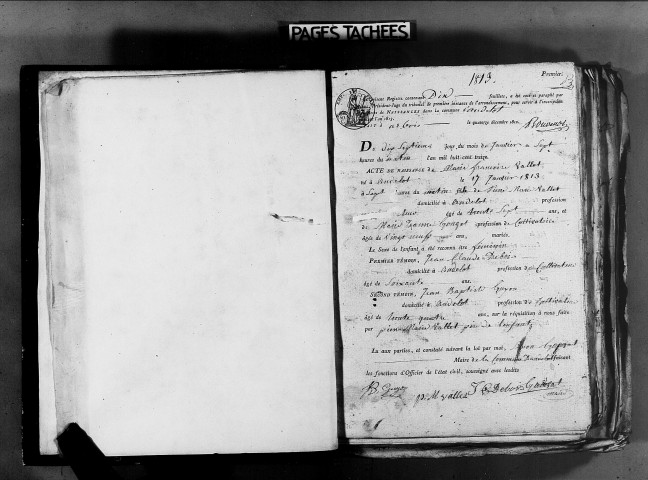 PAGES TACHEES
1813.
Premier
Registre contenant Dix feuillets, a été coté et paraphé par
Président-Juge du tribunal de première instance de l'arrondissement, pour servir à l'inscription
de NAISSANCES dans la commune d'andelot
l'an 1813.
le quatorze décembre 1812.
Du dix Septieme jour du mois de Janvier a Sept
heures du matin l'an mil huit cent treize
ACTE DE NAISSANCE de Marie francoise Vallet
né à Andelot le 17 Janvier 1813
à Sept heures du matin de Marie Vallet
domicilié à Andelot profession
âgé de trente Sept ans, et
de Marie Jeanne profession de Cultivatrice
âgée de Vingt neuf ans, mariés.
Le Sexe de l'enfant a été reconnu être féminin
PREMIER TÉMOIN, Jean Claude Debois
domicilié à Andelot profession de Cultivateur
âgé de Soixante ans.
SECOND TÉMOIN, Jean Baptiste Guyon
domicilié à Andelot profession de Cultivateur
âgé de trente quatre ans, sur la réquisition à nous faite
par pierre Marie Vallet père de l'enfant
Lu aux parties, et constaté suivant la loi par moi,
Maire de la Commune faisant
les fonctions d'Officier de l'état civil, soussigné avec lesdits
B. Guyon
p. M vallet J C Debois
maire